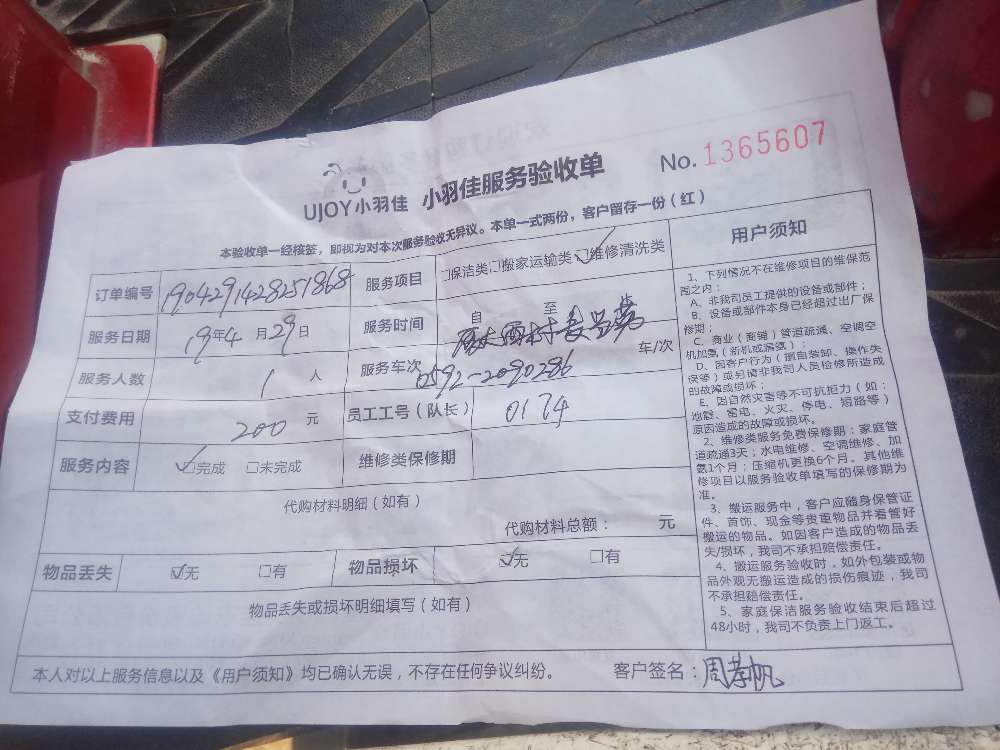 UJOY小羽佳 小羽佳服务验收单 No.1365607
本验收单一经核签，即视为对本次服务验收无异议。本单一式两份，客户留存一份（红）
订单编号 1904291428251868 服务项目 □保洁类□搬家运输类☑维修清洗类
服务日期 19年4月29日 服务时间 自 至
服务人数 1人 服务车次 0592-2090286 车/次
支付费用 200元 员工工号（队长） 0174
服务内容 ☑完成 □未完成 维修类保修期
代购材料明细（如有）
代购材料总额： 元
物品丢失 ☑无 □有 物品损坏 ☑无 □有
物品丢失或损坏明细填写（如有）
用户须知
1、下列情况不在维修项目的维保范
围之内：
A、非我司员工提供的设备或部件；
B、设备或部件本身已经超过出厂保
修期；
C、商业（商铺）管道疏通、空调空
机加氨（新机或漏氨）；
D、因客户行为（擅自装卸、操作失
保等）或另请非我司人员检修所造成
的故障或损坏；
E、因自然灾害等不可抗拒力（如：
地震、雷电、火灾、停电、短路等）
原因造成的故障或损坏。
2、维修类服务免费保修期：家庭管
道疏通3天；水电维修、空调维修、加
氨1个月；压缩机更换6个月。其他维
修项目以服务验收单填写的保修期为
准。
3、搬运服务中，客户应随身保管证
件、首饰、现金等贵重物品并看管好
搬运的物品。如因客户造成的物品丢
失/损坏，我司不承担赔偿责任。
4、搬运服务验收时，如外包装或物
品外观无搬运造成的损伤痕迹，我司
不承担赔偿责任。
5、家庭保洁服务验收结束后超过
48小时，我司不负责上门返工。
本人对以上服务信息以及《用户须知》均已确认无误，不存在任何争议纠纷。 客户签名：周孝帆